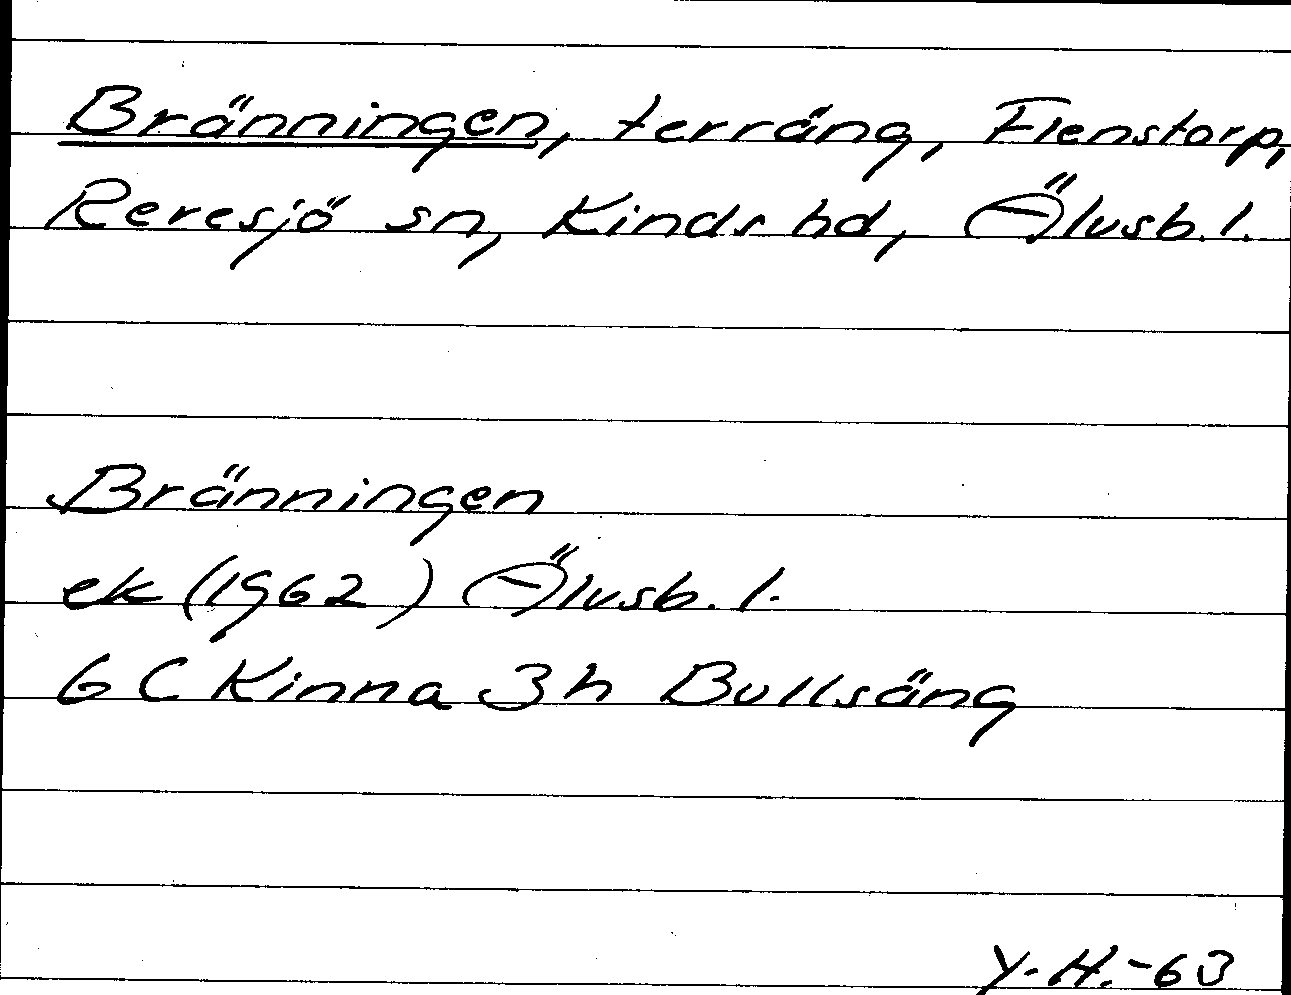 Bränningen, terräng, Flenstorp,
Reresjö sn, Kinds hd, Älvsb. l.
Bränningen
ek (1962) Älvsb. l.
6 C Kinna 3 h Bullsäng
Y. H. -63